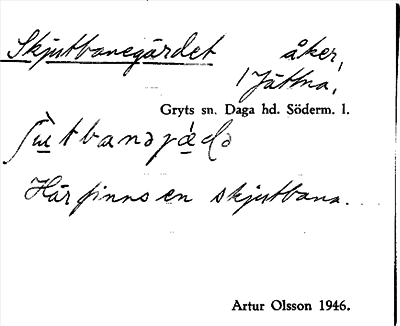 Skjutbanegärdet åker,
i Jättna,
Gryts sn. Daga hd. Söderm. l.
Här finns en skjutbana.
Artur Olsson 1946.